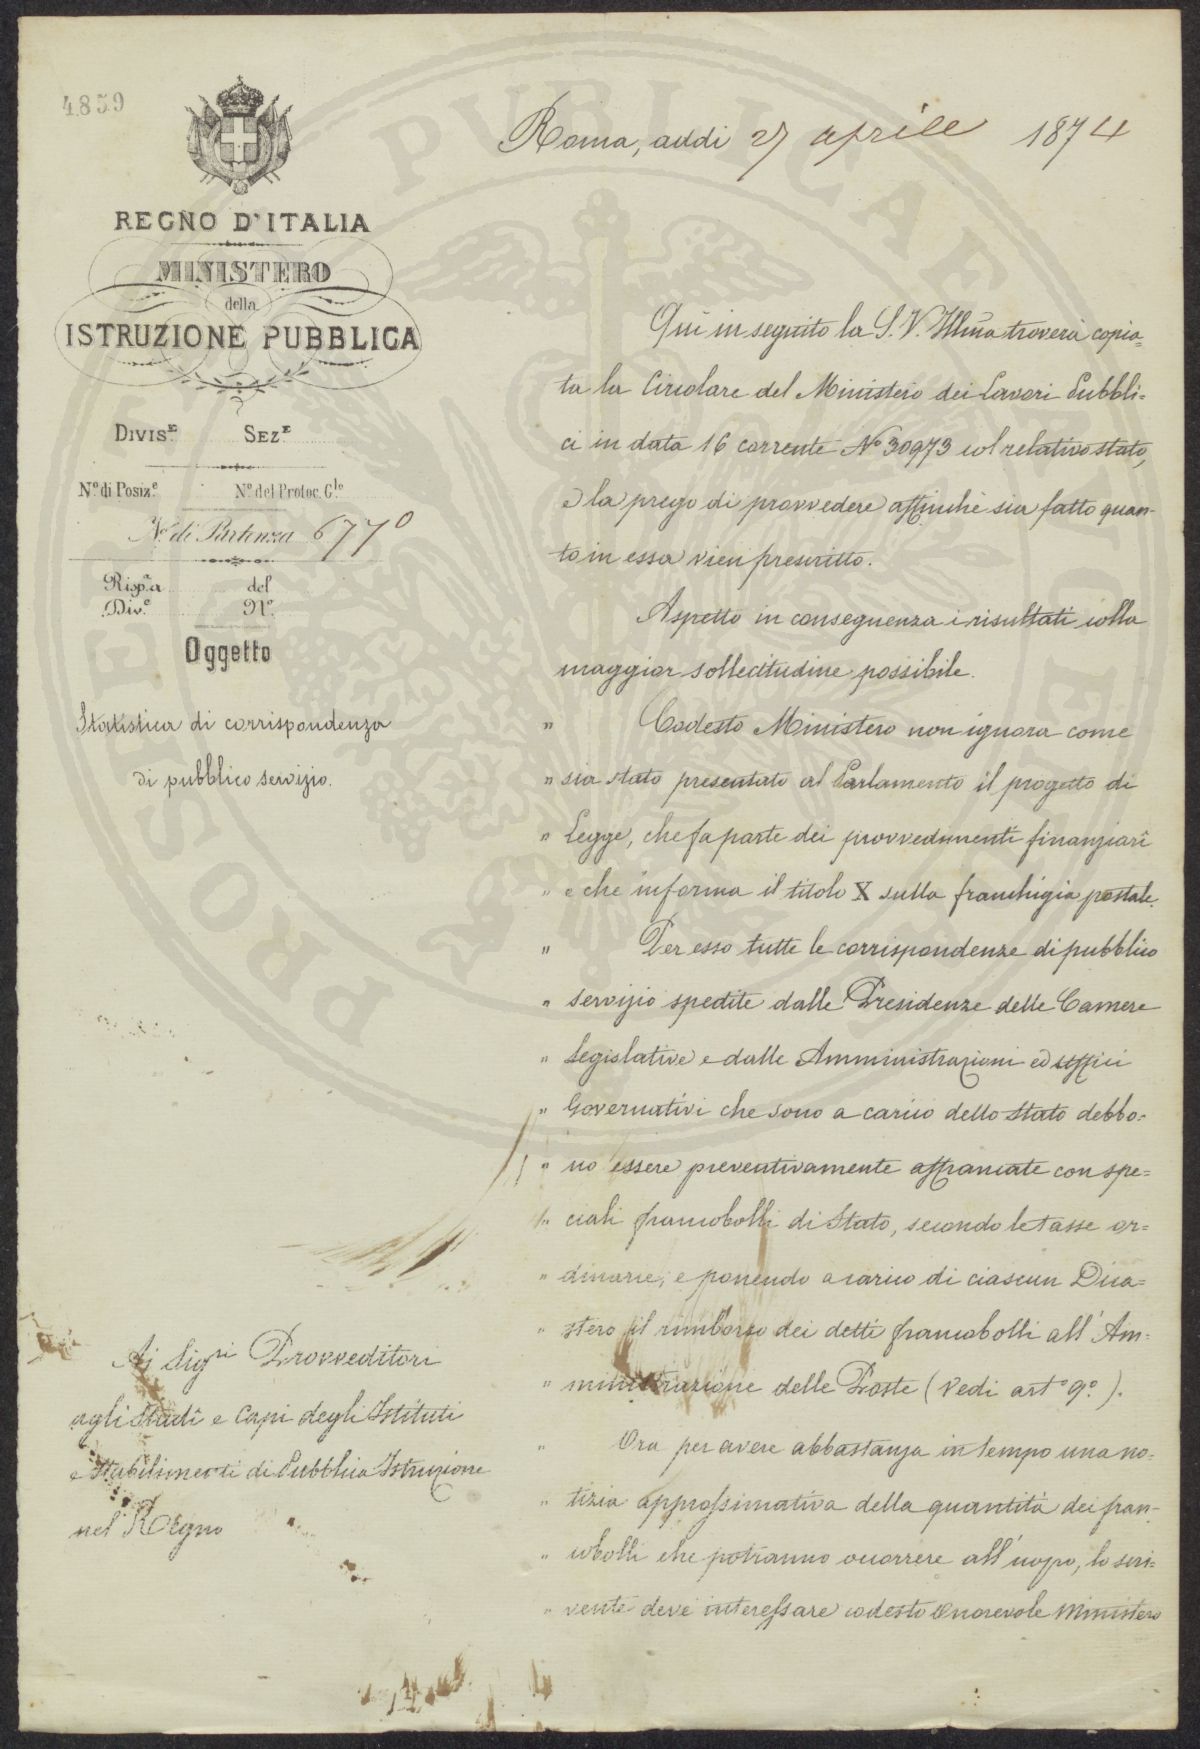 4859
REGNO D'ITALIA
MINISTERO
della
ISTRUZIONE PUBBLICA
Divis.e Sez.e
N.o di Posiz.e N.o del Protoc. G.le
N.o di Partenza 6770
Risp.a a del
Div.e N.o
Oggetto
Statistica di corrispondenza
di pubblico servizio.
Ai Sig.ri Provveditori
agli Studî e Capi degli Istituti
e Stabilimenti di Pubblica Istruzione
nel Regno
Roma, addi 27 aprile 1874
Qui in seguito la S. V. Illma troverà copia=
ta la Circolare del Ministero dei Lavori Pubbli=
ci in data 16 corrente No 30973 col relativo stato,
e la prego di provvedere affinchè sia fatto quan-
to in essa vien prescritto.
Aspetto in conseguenza i risultati colla
maggior sollecitudine possibile.
" Codesto Ministero non ignora come
" sia stato presentato al Parlamento il progetto di
" Legge, che fa parte dei provvedimenti finanziarî
" e che informa il titolo X sulla franchigia postale.
" Per esso tutte le corrispondenze di pubblico
" servizio spedite dalle Presidenze delle Camere
" Legislative e dalle Amministrazioni ed uffici
" Governativi che sono a carico dello Stato debbo=
" no essere preventivamente affrancate con spe=
" ciali francobolli di Stato, secondo le tasse or=
" dinarie, e ponendo a carico di ciascun Dica=
" stero il rimborso dei detti francobolli all' Am=
" ministrazione delle Poste (vedi arto 9o.).
" Ora per avere abbastanza in tempo una no=
" tizia approssimativa della quantità dei fran-
" cobolli che potranno occorrere all'uopo, lo scri=
" vente deve interessare codesto Onorevole Ministero
PROSPERITAS PUBLICAE